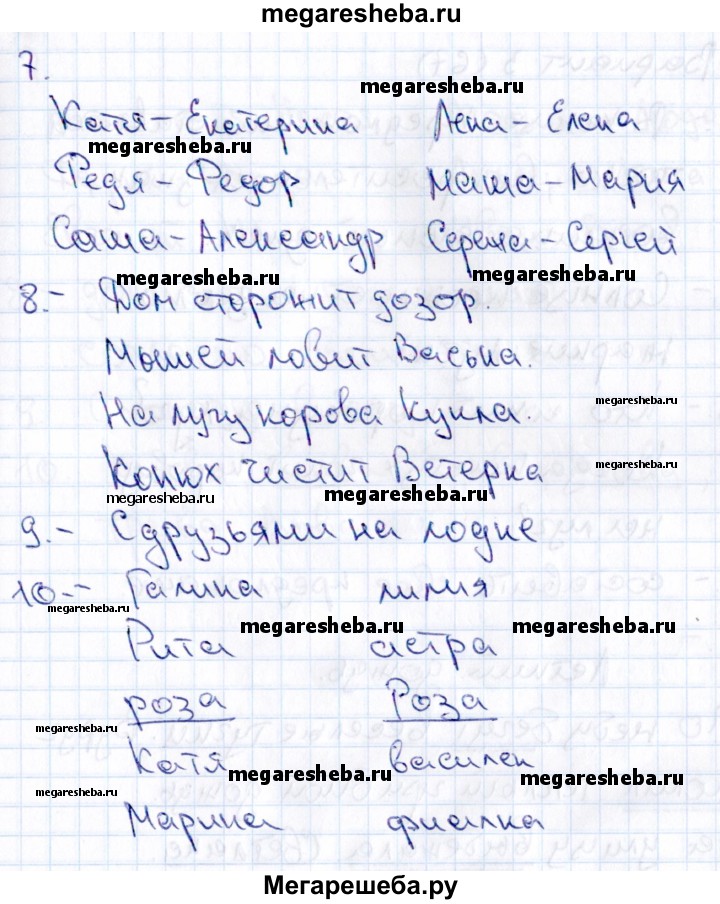 megaresheba.ru
7.
megaresheba.ru
Катя - Екатерина Лена - Елена
megaresheba.ru
Федя - Федор Маша - Мария
Саша - Александр Сережа - Сергей
megaresheba.ru megaresheba.ru
8.- Дом сторожит дозор.
Мышей ловит Васька.
megaresheba.ru
На лугу корова Кукла.
megaresheba.ru
Конюх чистит Ветерка
megaresheba.ru megaresheba.ru
9.- С друзьями на лодке
10.- Галина лилия
megaresheba.ru
megaresheba.ru megaresheba.ru
Рита астра
роза Роза
megaresheba.ru
Катя василек
megaresheba.ru megaresheba.ru
megaresheba.ru
Марина фиалка
Мегарешеба.ру